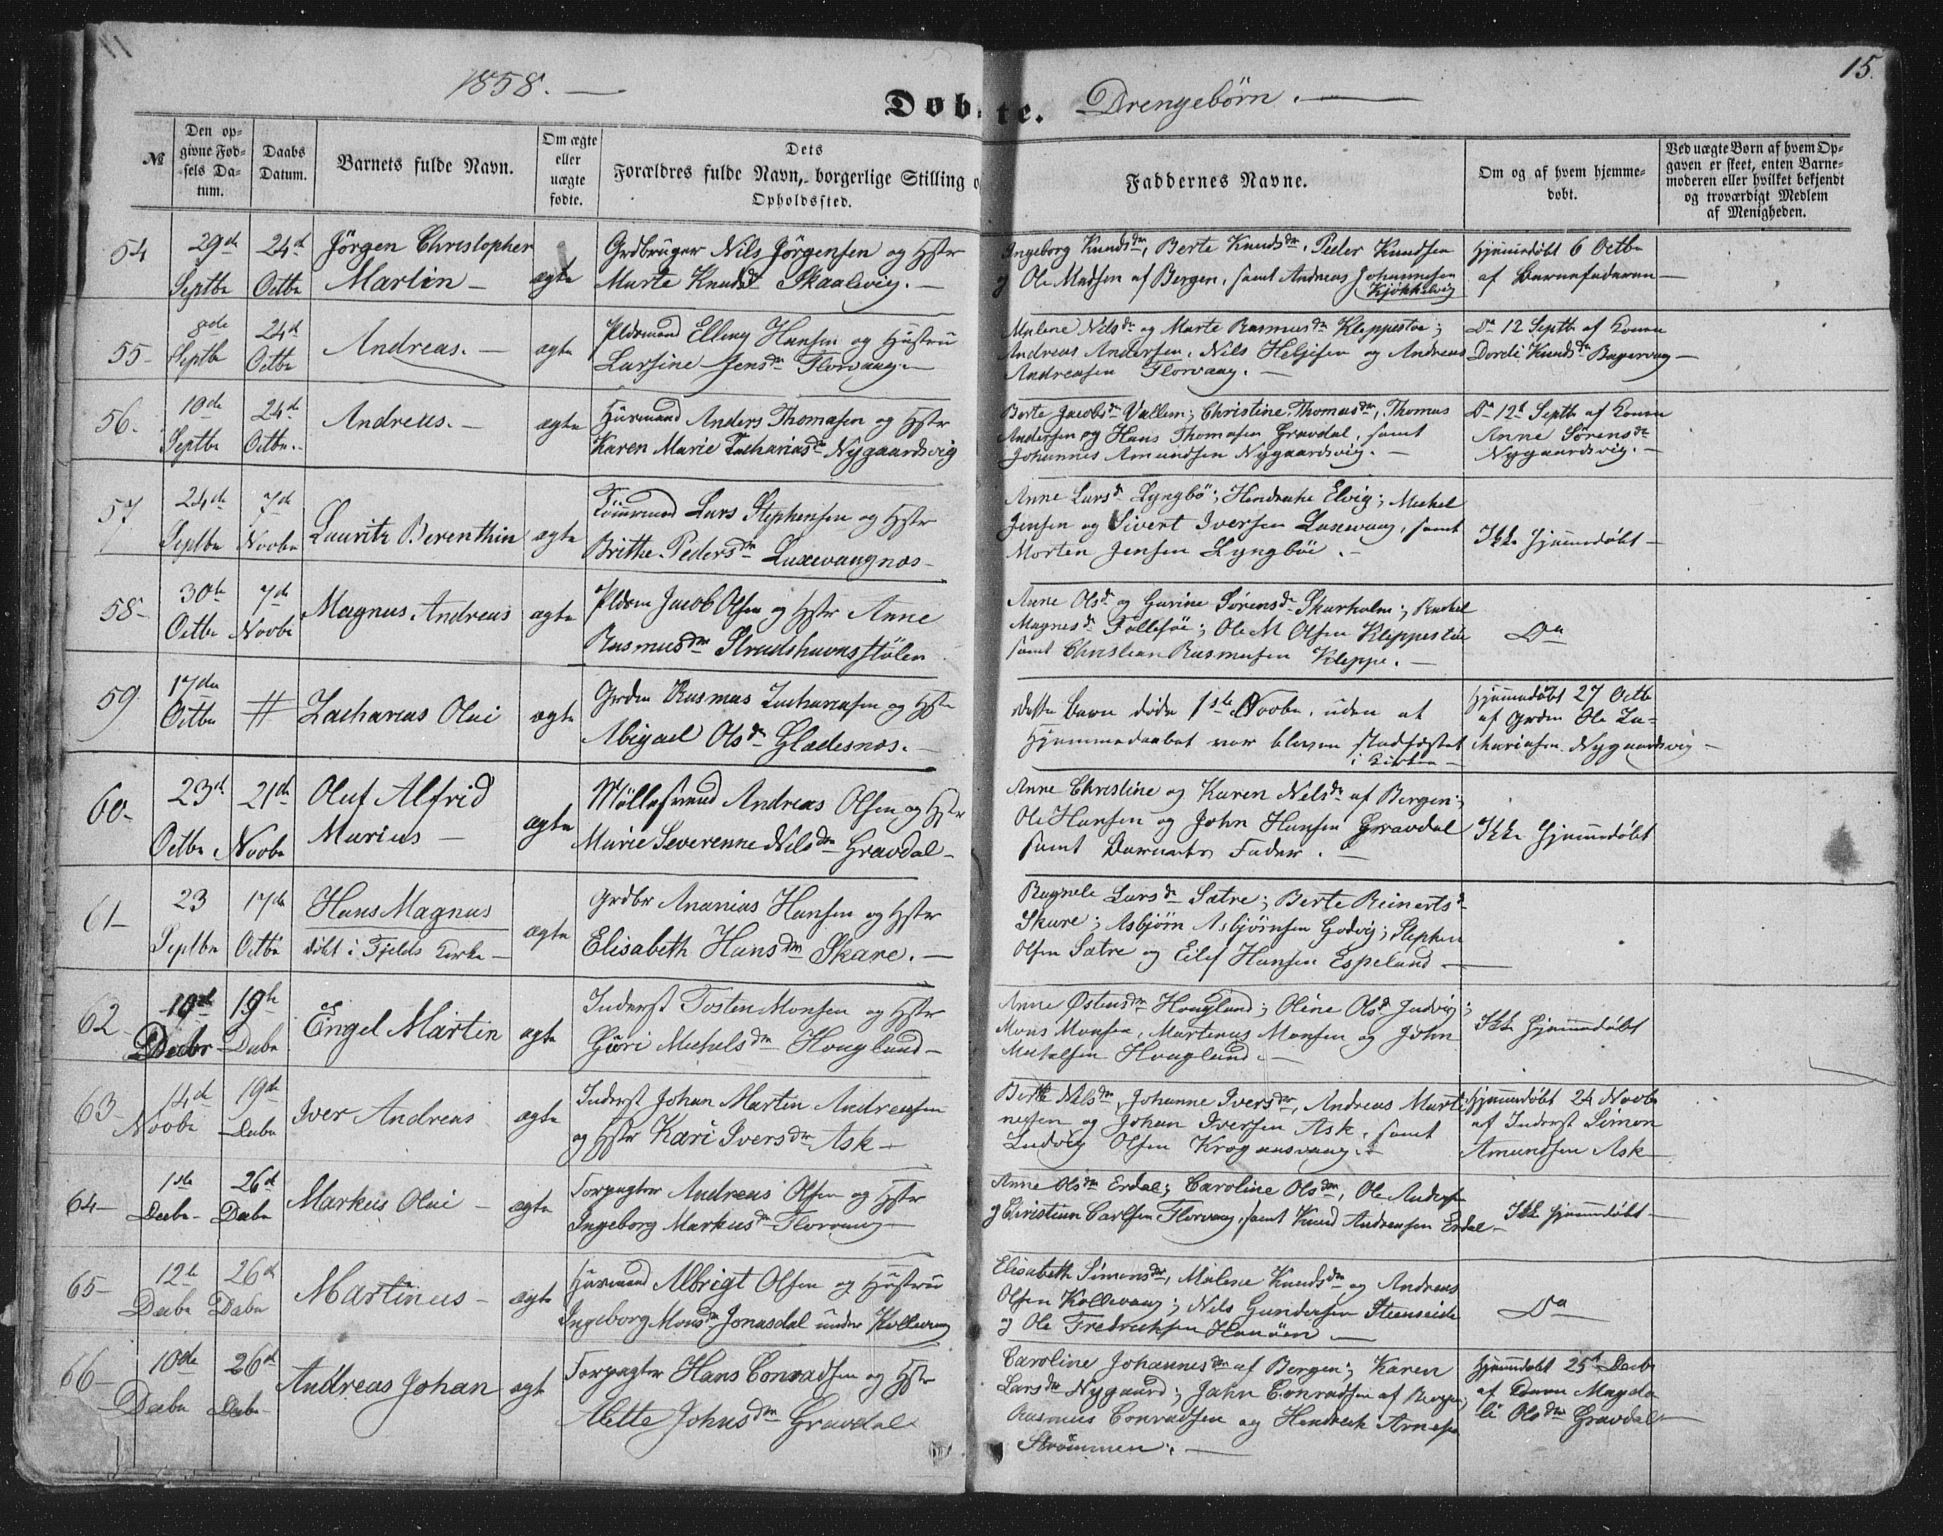 11
15.
1858. —
Døbte. Drengebørn. —
№
Den opgivne Fødsels Datum.
Daabs Datum.
Barnets fulde Navn.
Om ægte eller uægte fødte.
Dets Forældres fulde Navn, borgerlige Stilling o
Opholdssted.
Faddernes Navne.
Om og af hvem hjemmedøbt.
Ved uægte Børn af hvem Opgaven er skeet, enten Barnemoderen eller hvilket bekjendt og troværdigt Medlem af Menigheden.
54
29de Septbr
24d Octbr
Jørgen Christopher
Martin –
ægte
Grdbruger Nils Jørgensen og Hstr
Marte Knudsdr Skaalevig. –
Ingeborg Knudsdr, Berte Knudsdr, Peder Knudsen
og Ole Madsen af Bergen, samt Andreas Johannesen
Kjøkkelvig
Hjemmedøbt 6 Octbr
af Barnefaderen –
55–
8de Septbr
24d Octbr
Andreas. –
ægte
Pldsmand Elling Hansen og Hustru
Larsine Jensdr Florvaag. –
Malene Nilsdr og Marte Rasmusdr Kleppestøe;
Andreas Andersen, Nils Heljesen og Andreas
Andreasen Florvaag. –
Do 12 Septbr af Konen
Dorde Knudsdr
56.
10de Septbr
24d Octbr.
Andreas. –
ægte
Huusmand Anders Thomasen og Hstr
Karen Marie Zachariasdr Nygaardsvig
Berte Jacobsdr Vallem; Christine Thomasdr, Thomas
Andersen og Hans Thomasen Gravdal, samt
Johannes Amundsen Nygaardsvig. –
Do 12d Septbr af Konen
Anne Sørensdr
Nygaardsvig. –
57
24de Septbr
7de Novbr
Lauritz Berenthin
ægte
Lars Stephensen og Hstr
Brithe Pedersdr Laxevaagnæs –
Anne Larsdr Lyngbø; Hendrikke Elvig; Mickel
Jensen og Sivert Iversen Laxevaag, samt
Morten Jensen Lyngbøe. –
Ikke hjemmedøbt –
58–
30te Octbr
7de Novbr
Magnus Andreas
ægte
Pldsm Jacob Olsen og Hstr Anne
Rasmusdr Strudshavnsstølen
Anne Olsdr og Gurine Sørensdr Skarholm; Rachel
Magnesdr Follesøe; Ole M Olsen Kleppestøe
samt Christian Rasmusen Kleppe. –
Do
59.
17de Octbr
#
Zacharias Olai
ægte
Grdm Rasmus Zachariasen og Hstr
Abigael Olsdr Gladesnæs. –
Dette Barn døde 1ste Novbr, uden at
Hjemmedaaben var bleven stadfæstet
i Kirken –
Hjemmedøbt 27 Octbr
af Grdm Ole Zachariasen Nygaardsvig –
60–
23d Octbr
21de Novbr
Oluf Alfrid
Marius –
ægte
Møllesvend Andreas Olsen og Hstr
Marie Severenne Nilsdr Gravdal –
Anne Christine og Karen Nilsdr af Bergen;
Ole Hansen og John Hansen Gravdal
samt Barnets Fader. –
Ikke hjemmedøbt
61–
23 Septbr
17de Octbr
Hans Magnus
døbt i Fjelds Kirke –
ægte
Grdbr Ananias Hansen og Hstr
Elisabeth Hansdr Skare. –
Ragnele Larsdr Satre; Berte Reinertsdr
Skare; Asbjørn Asbjørnsen Godvig; Stephen
Olsen Satre og Eilef Hansen Espeland –
62–
10de Decbr
19de Decbr
Engel Martin
ægte
Inderst Tosten Monsen og Hstr
Guri Mickelsdr Hougland –
Anne Østensdr Hougland; Oline Olsdr Judvig;
Mons Monsen, Martinus Monsen og John
Mickelsen Hougland. –
Ikke hjemmedøbt
63–
14de Novbr
19de Decbr
Iver Andreas
ægte
Inderst Johan Martin Andreasen
og Hstr Kari Iversdr Ask –
Berthe Nilsdr, Johanne Iversdr, Andreas Martinessen og Johan Iversen Ask, samt
Ludvig Olsen Krogaasvaag. –
Hjemmedøbt 24 Novbr
af Inderst Simon
Amundsen Ask –
64–
1ste Decbr –
26d Decbr
Markus Olai –
ægte
Forpagter Andreas Olsen og Hstr
Ingeborg Markusdr Florvaag –
Anne Olsdr Erdal; Caroline Olsdr, Ole Anders
og Christian Carlsen Florvaag, samt Knud Andreasen Erdal –
Ikke hjemmedøbt –
65–
12te Decbr
26d Decbr
Martinus –
ægte
Huusmand Albrigt Olsen og Hustru
Ingeborg Monsdr Jonasdal under Kollevaag
Elisabeth Simonsdr, Malene Knudsdr og Andreas
Olsen Kollevaag; Nils Gundersen Steenseide
og Ole Fredriksen Hanøen –
Do
66–
10de Decbr
26d Decbr
Andreas Johan
ægte
Forpagter Hans Conradsen og Hstr
Alette Johnsdr Gravdal
Caroline Johannesdr af Bergen; Karen
Larsdr Nygaard; Jahn Conradsen af Bergen;
Rasmus Conradsen og Hendrick Arnesen
Strømmen. –
Hjemmedøbt 25d Decbr
af Konen Magdali Olsdr Gravdal –